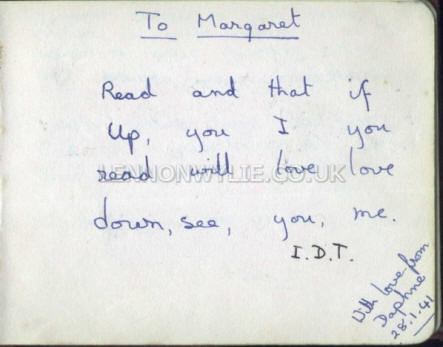 To Margaret
Read and that if
Up, you I you
read will love love
LENNONWYLIE.CO.UK
down, see, you, me.
I.D.T.
With love from
Daphne
28.1.41